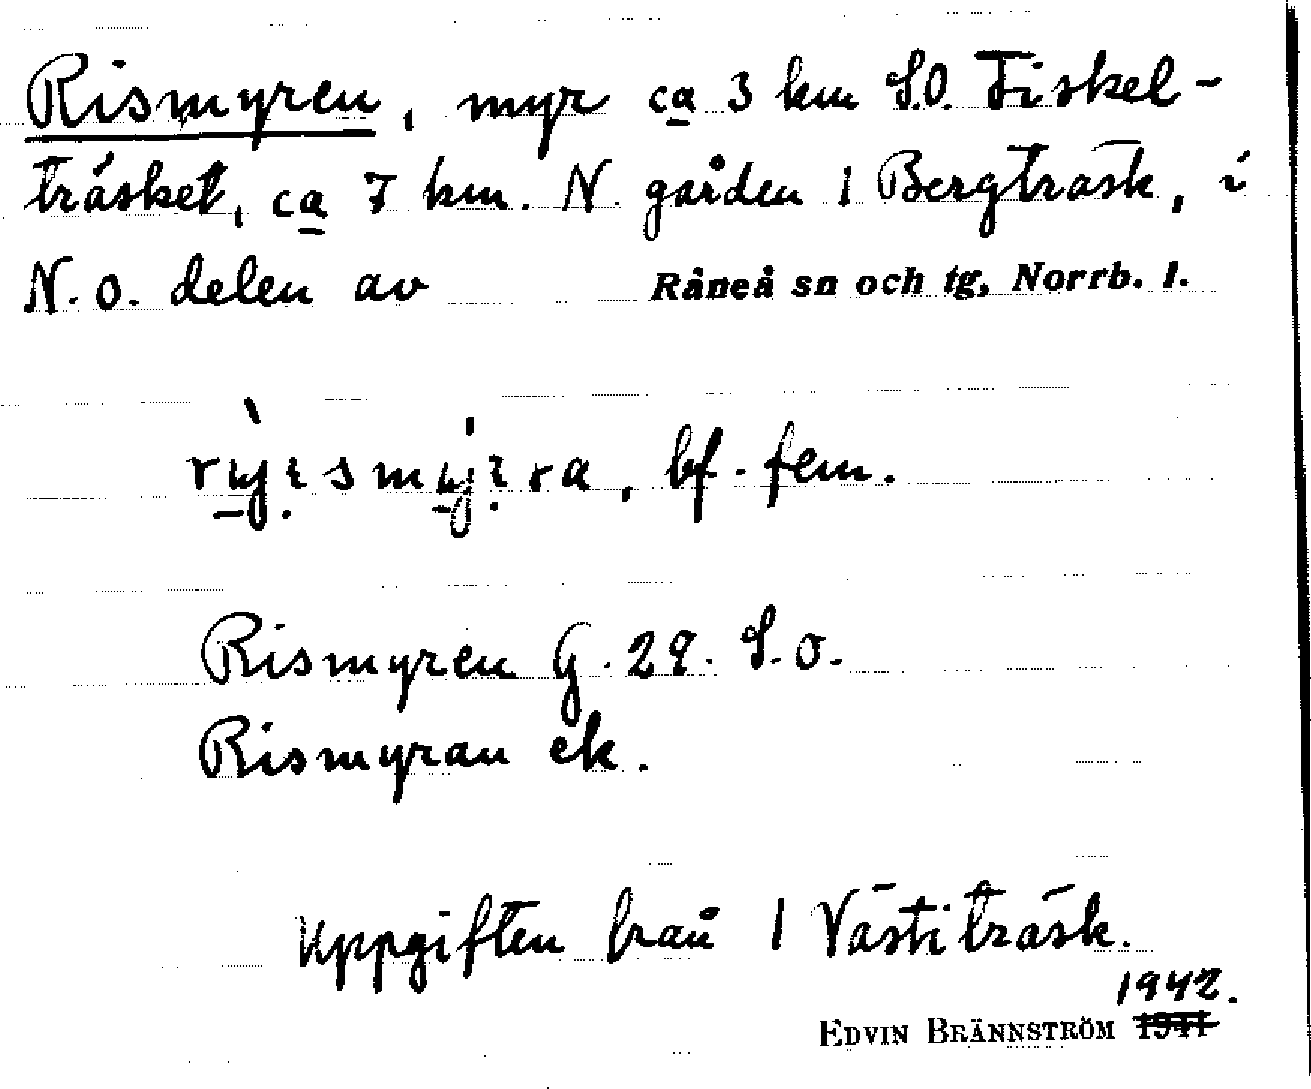 Rismyren, myr ca 3 km S.O. Fiskel-
träsket, ca 7 km. N. gården 1 Bergträsk, i
N.O. delen av Råneå sn och tg, Norrb. l.
bf. fem.
Rismyren G. 29. S.O.
Rismyran ek.
Uppgiften från 1 Västiträsk.
1942.
EDVIN BRÄNNSTRÖM 1941